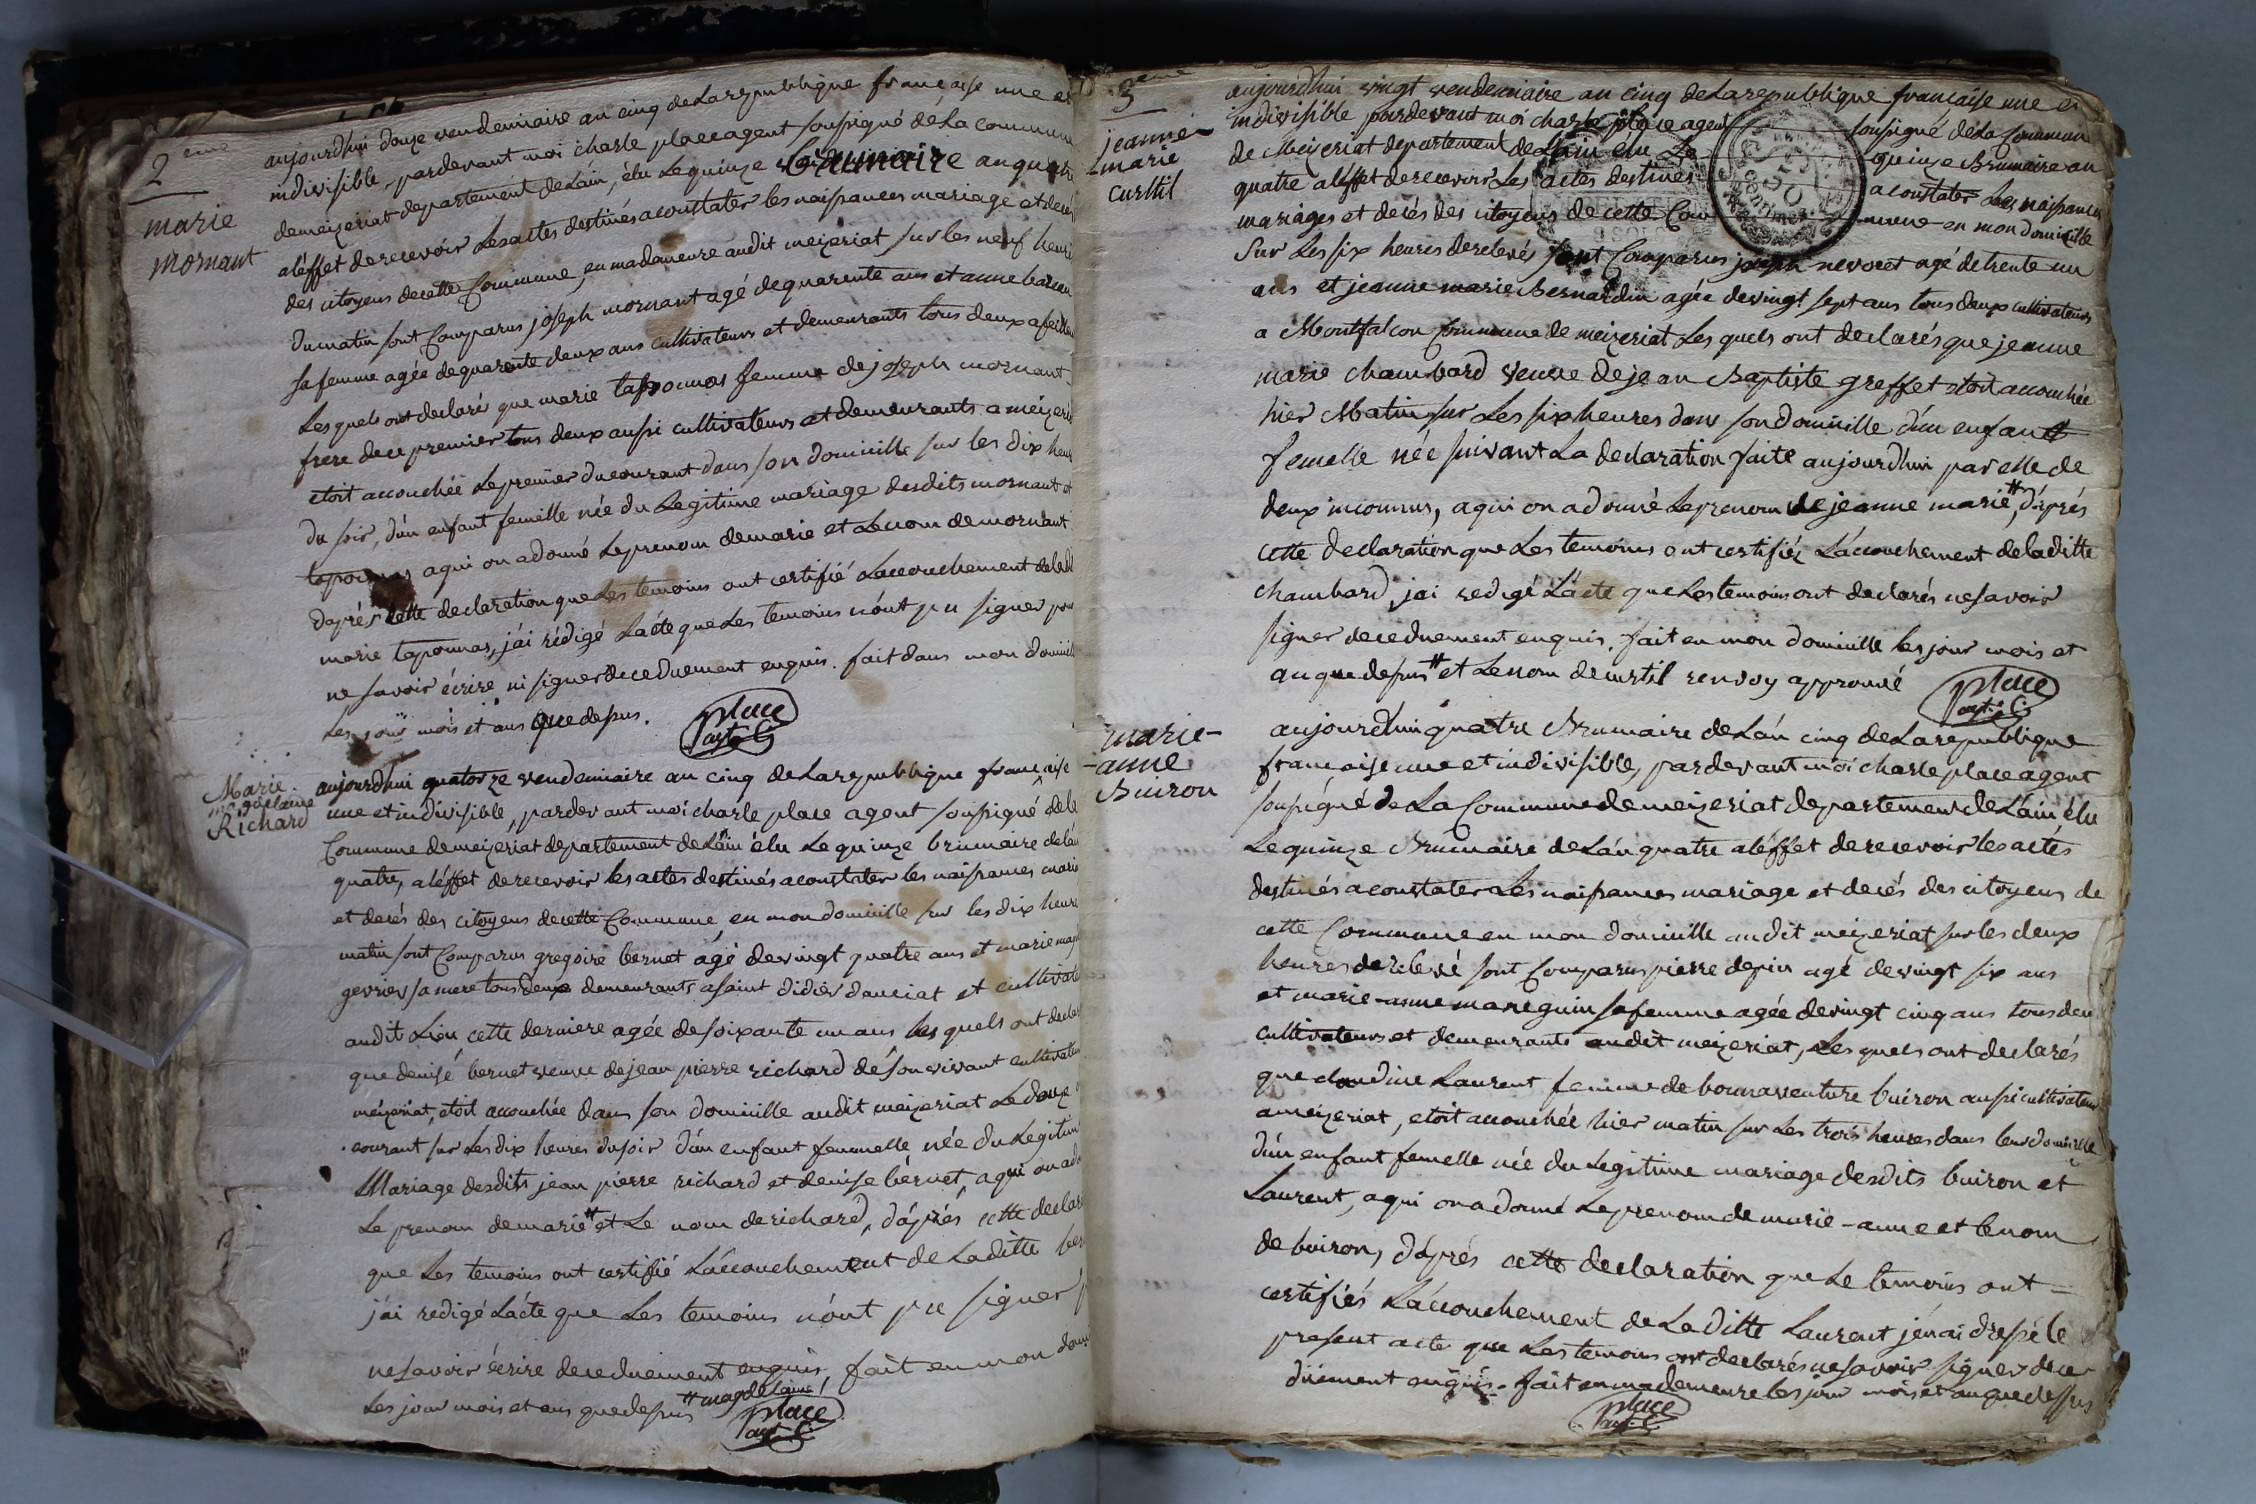 2eme
marie
mornant
aujourdhui douze vendemiaire an cinq de La republique française une et
indivisible, pardevant moi charle place agent soussigné de La commune
de meizeriat departement de Lain, élu Le quinze brumaire an quatre
a léffet de recevoir Les actes destinés a constater les naissances mariage et decés
des citoyens de cette Commune, en ma demeure audit meizeriat sur les neuf heures
du matin sont Comparus joseph mornant agé de quarente ans et anne
sa femme agée de quarente deux ans cultivateurs et demeurants tous deux a
Les quels ont declarés que marie taponnas femme de joseph mornant
frere de ce premier tous deux aussi cultivateurs et demeurants a meizeriat
etoit accouchéé Le premier du courant dans son domicille sur les dix heures
du soir, dún enfant femelle née du Legitime mariage desdits mornant et
taponnas a qui on a donné Le prenom de marie et Le nom de mornant
daprés cette declaration que Les temoins ont certifié Laccouchement de ladite
marie taponnas, jái rédigé Lácte que Les temoins nónt pu signer pour
ne savoir écrire ni signer de ce duement enquis. fait dans mon domicille
Les jour mois et ans que dessus.
place
agt C
Marie
magdelaine
Richard
aujourdhui quatorze vendemiaire an cinq de La republique française
une et indivisible, pardevant moi charle place agent soussigné de la
Commune de meizeriat departement de Láin élu Le quinze brumaire de lán
quatre, a léffet de recevoir les actes destinés a constater les naissances mariage
et decés des citoyens de cette Commune, en mon domicille sur les dix heures
matin sont Comparus gregoire bernet agé de vingt quatre ans et marie
gevrier sa mere tous deux demeurants a saint didier daussiat et
audit Lieu cette derniere agée de soixante un ans, les quels ont declarés
que denise bernet veuve de jean pierre richard de son vivant cultivateur
meizeriat, etoit accouchée dans son domicille audit meizeriat Le douze
courant sur Les dix heures du soir dún enfant femmelle née du Legitime
Mariage desdits jean pierre richard et denise bérnet, a qui on a donné
Le prenom de marie # et Le nom de richard, dáprés cette declaration
que Les temoins ont certifié Láccouchement de La ditte
jái redigé Lácte que Les temoins nónt pu signer
ne savoir écrire de ce duement enquis, fait en mon domicille
Les jour mois et ans que dessus # magdelaine
place
agt C
3eme
jeanne
marie
curtil
aujourdhui vingt vendemiaire an cinq de La republique française une et
indivisible pardevant moi charle place agent soussigné de La Commune
de Meizeriat departement de Lain elu Le quinze Brumaire an
quatre a léffet de recevoir Les actes destinés a constater Les naissances
mariages et decés des citoyens de cette Commune en mon domicille
Sur Les six heures de relevés sont Comparus joseph nevoret agé de trente un
ans et jeanne marie Bernardin agée de vingt sept ans tous deux cultivateurs
a Montfalcon Commune de meizeriat Les quels ont declarés que jeanne
marie chambard veuve de jean Baptiste greffet etoit accouchée
hier Matin sur Les six heures dans son domicille dún enfant
femelle née suivant La declaration faite aujourdhui par elle de
deux inconnus, a qui on a donné Le prenom de jeanne marie #, dáprés
cette declaration que Les temoins ont certifiés Láccouchement de la ditte
chambard jai redigé Lácte que Les temoins ont declarés ne savoir
signer de ce duement enquis. fait en mon domicille les jour mois et
an que dessus # et Le nom de curtil renvoy approuvé
place
agt C
marie-
-anne
Buiron
aujourdhui quatre Brumaire de Lán cinq de La republique
française une et indivisible, pardevant moi charle place agent
soussigné de La Commune de meizeriat departement de Láin élu
Le quinze Brumaire de Lán quatre a léffet de recevoir les actes
destinés a constater Les naissances mariage et decés des citoyens de
cette Commune en mon domicille audit meizeriat sur les deux
heures de relevé sont Comparus pierre depin agé de vingt six ans
et marie-anne maneguin sa femme agée de vingt cinq ans tous deux
cultivateurs et demeurants audit meizeriat, Les quels ont declarés
que claudine Laurent femme de bonnaventure buiron aussi cultivateur
a meizeriat, etoit accouchée hier matin sur Les trois heures dans leur domicille
dún enfant femelle née du Legitime mariage desdits buiron et
Laurent, a qui on a donné Le prenom de marie-anne et le nom
de buiron, dáprés cette declaration que Le temoins ont
certifiés Láccouchement de La ditte Laurent jén ai dressé le
present acte que Les temoins ont declarés ne savoir signer de ce
duement enquis. fait en ma demeure les jour mois et an que dessus
place
agt C
50
Centimes